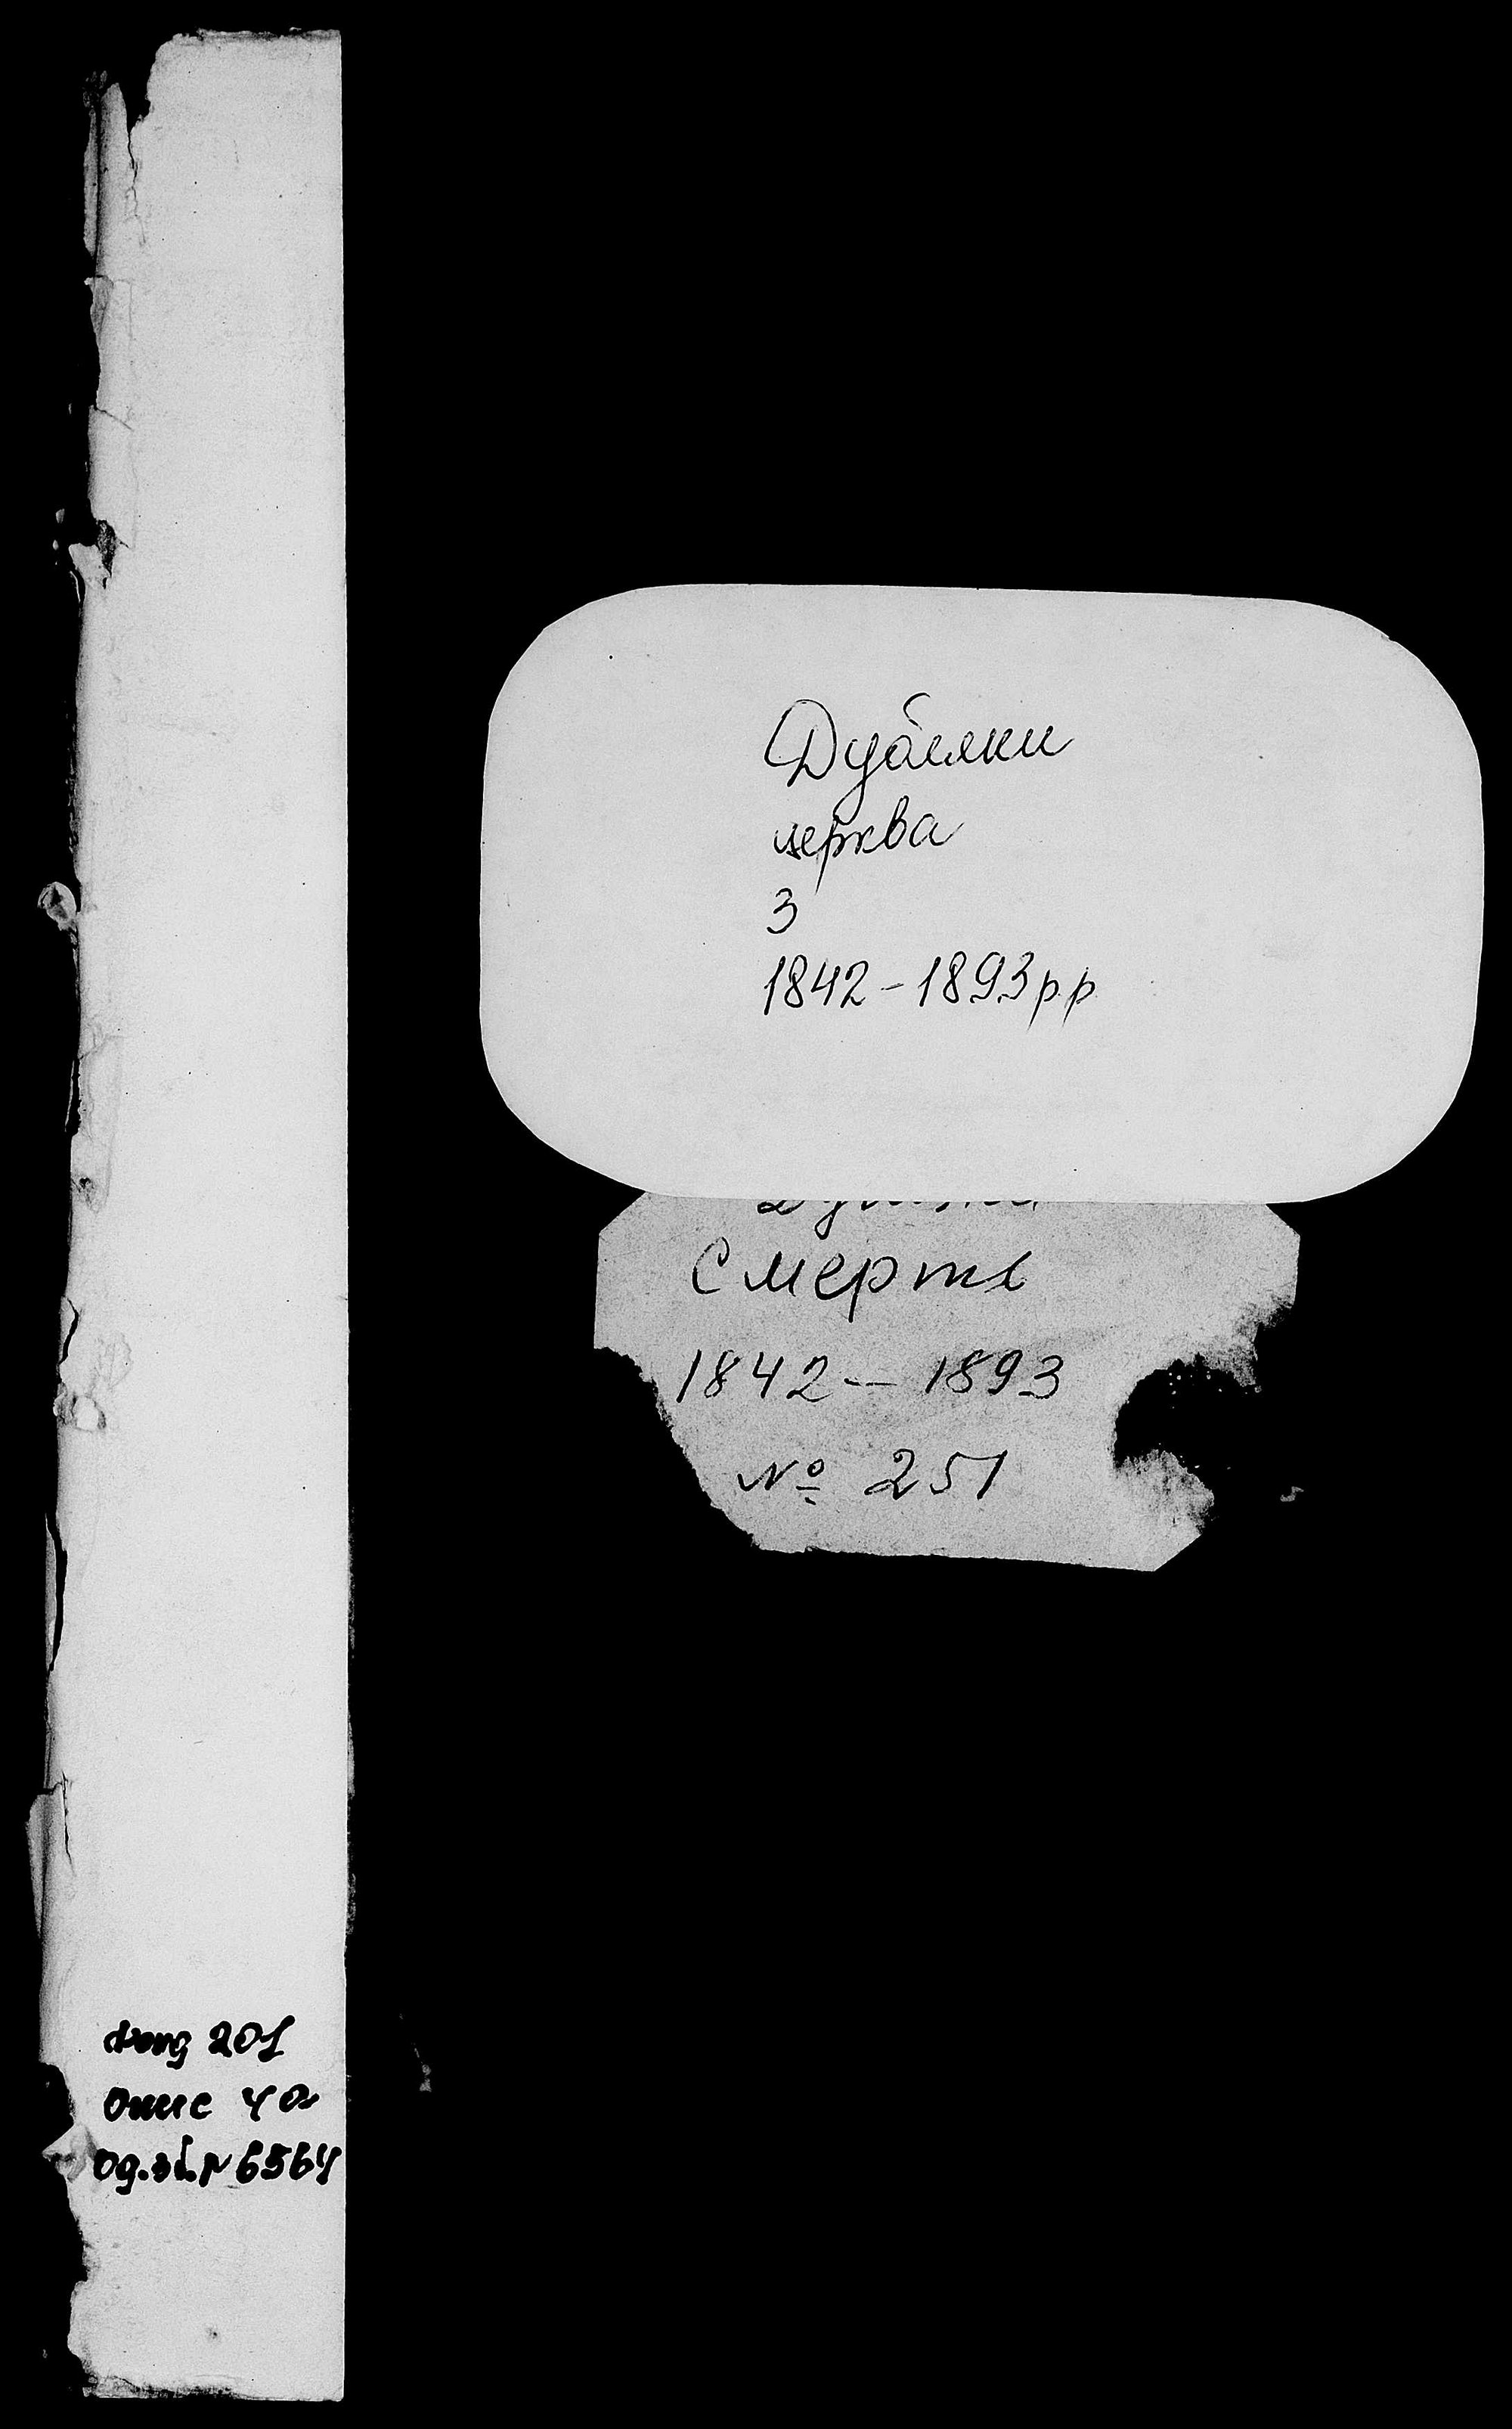 Дубляни
церква
3
1842-1893рр
Смерть
1842-1893
№ 251
фонд 201
опис 4а
од.зб.№ 6564